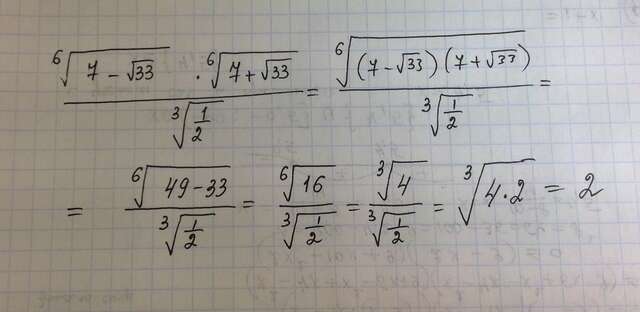 ⁶√(7 − √33) · ⁶√(7 + √33) / ³√(1/2) = ⁶√((7 − √33)(7 + √33)) / ³√(1/2) =
= ⁶√(49 − 33) / ³√(1/2) = ⁶√16 / ³√(1/2) = ³√4 / ³√(1/2) = ³√(4 · 2) = 2